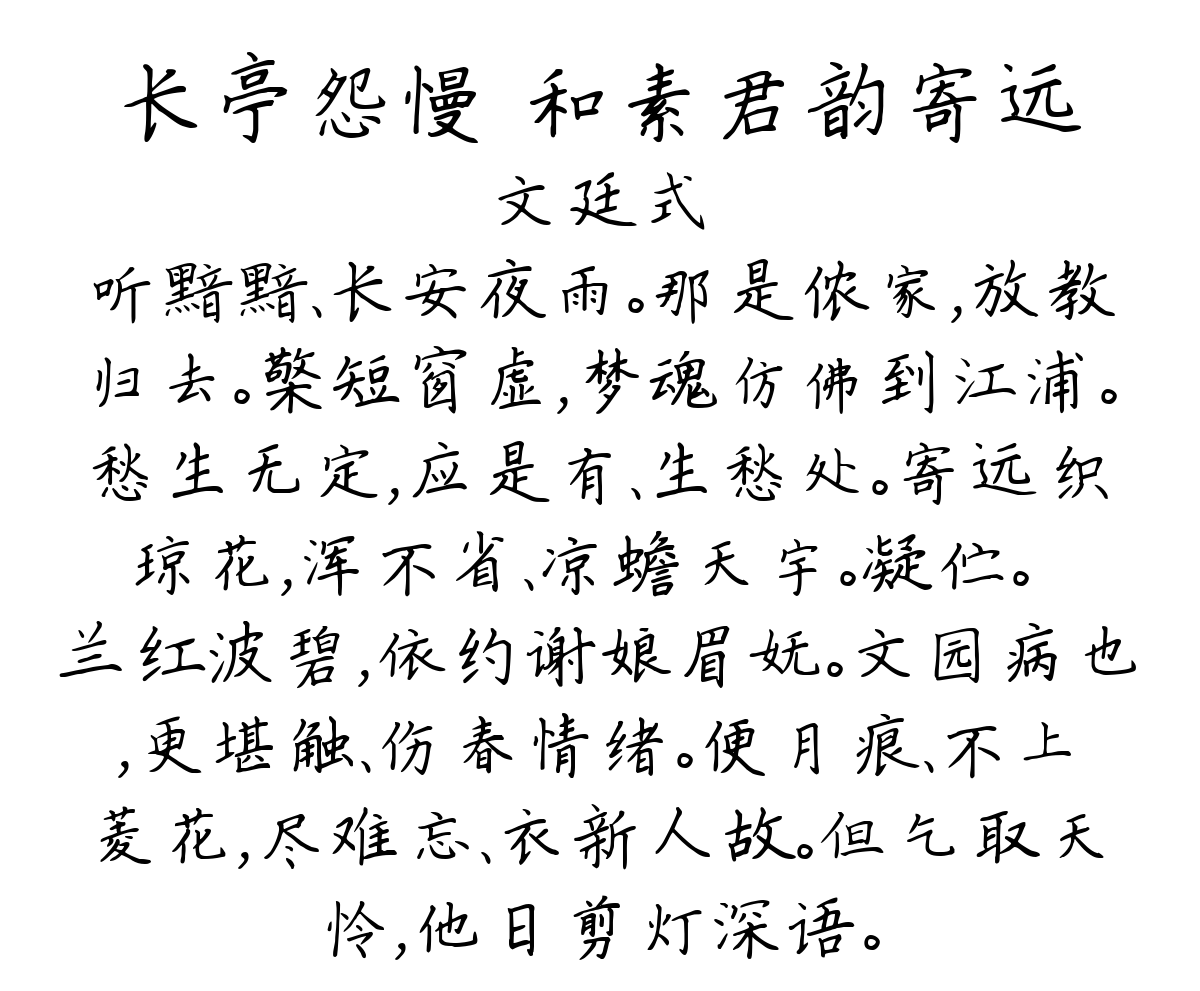 长亭怨慢 和素君韵寄远
文廷式
听黯黯、长安夜雨。那是侬家,放教
归去。檠短窗虚,梦魂仿佛到江浦。
愁生无定,应是有、生愁处。寄远织
琼花,浑不省、凉蟾天宇。凝伫。
兰红波碧,依约谢娘眉妩。文园病也
,更堪触、伤春情绪。便月痕、不上
菱花,尽难忘、衣新人故。但乞取天
怜,他日剪灯深语。